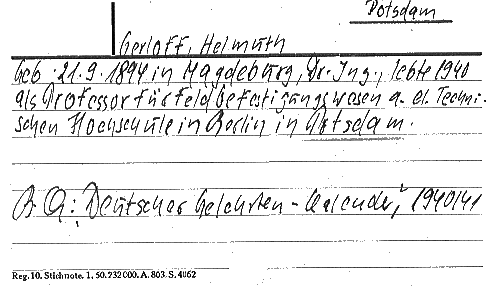 Potsdam
Gerloff, Helmuth
Geb. 21.9.1894 in Magdeburg, Dr. Ing., lebte 1940
als Professor für Feldbefestigungswesen a. d. Techni-
schen Hochschule in Berlin in Potsdam.
B Q: Deutscher Gelehrten-Kalender, 1940/41
Reg. 10. Stichnote. 1, 50. 232 000. A. 803. S. 4062